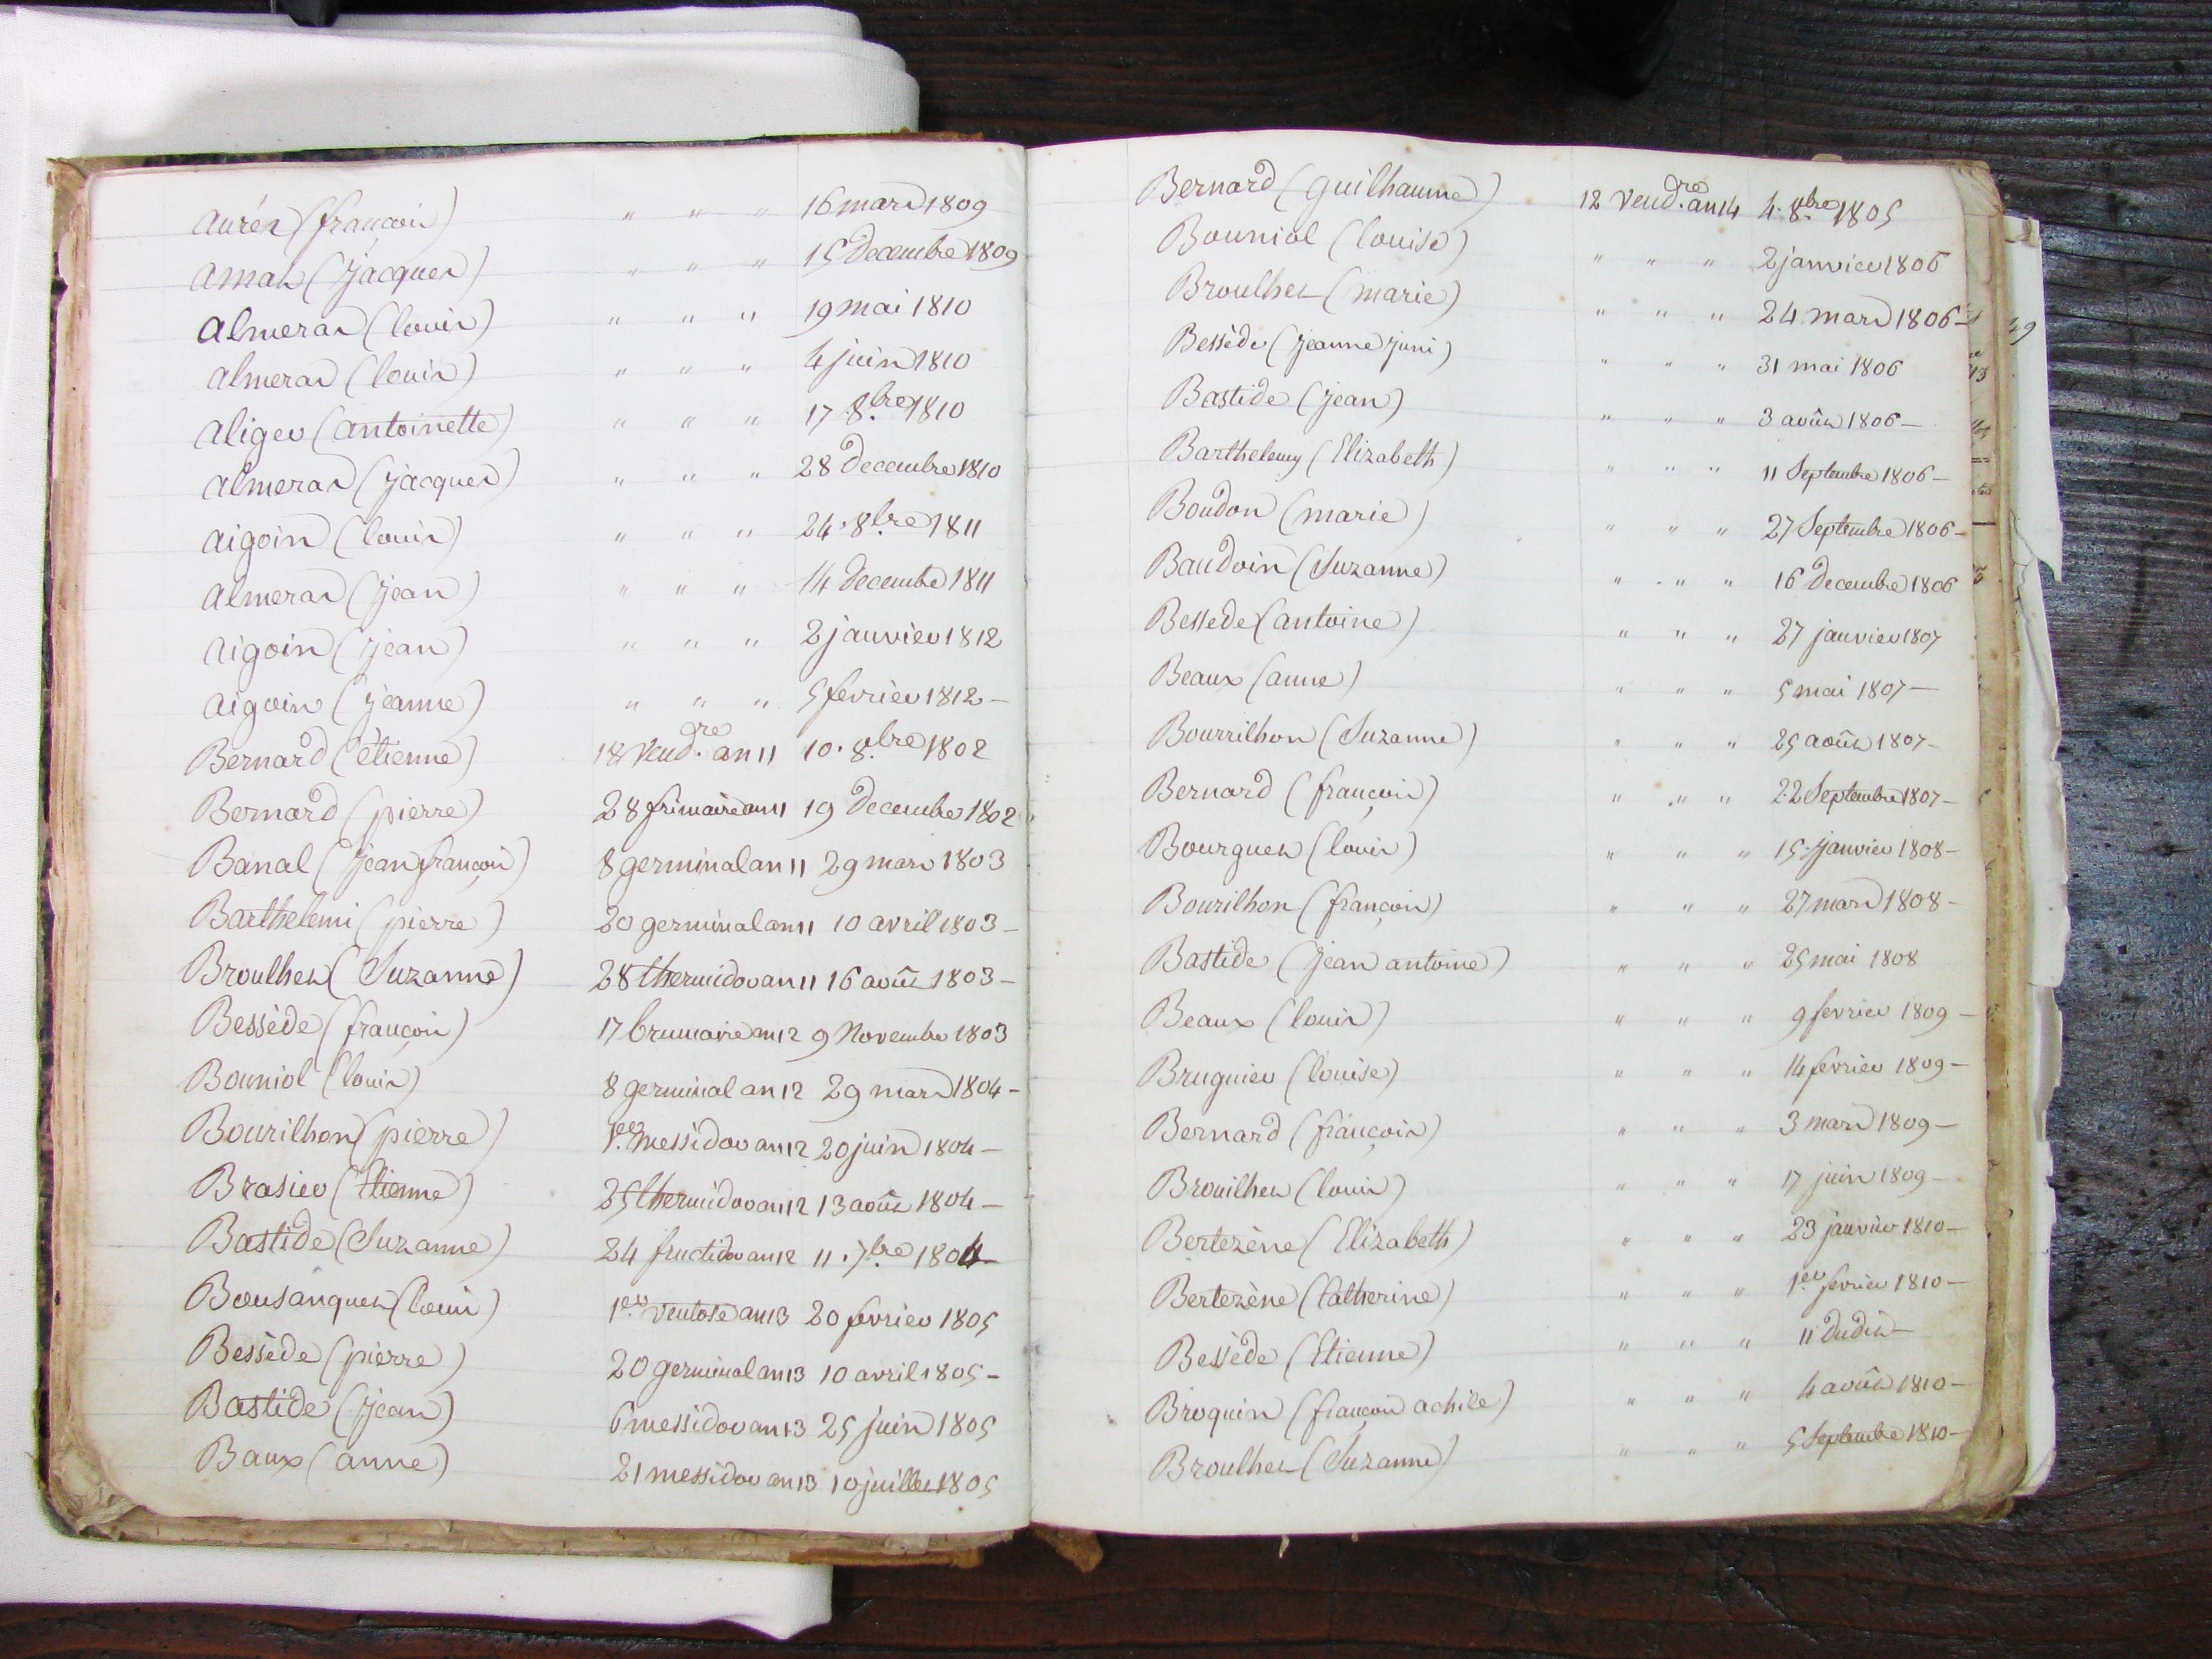 aurés (francois) " " " 16 mars 1809
amat (jacques) " " " 15 decembre 1809
almeras (louis) " " " 19 mai 1810
almeras (louis) " " " 4 juin 1810
aliger (antoinette) " " " 17 8.bre 1810
almeras (jacques) " " " 28 decembre 1810
aigoin (louis) " " " 24. 8bre 1811
almeras (jean) " " " 14 decembre 1811
aigoin (jean) " " " 2 janvier 1812
aigoin (jeanne) " " " 5 fevrier 1812 –
Bernard (étienne) 18 Vend.re an 11 10. 8.bre 1802
Bernard (pierre) 28 frimaire an 11 19 decembre 1802
Banal (jean françois) 8 germinal an 11 29 mars 1803
Barthelemi (pierre) 20 germinal an 11 10 avril 1803 –
Broulhet (Suzanne) 28 thermidor an 11 16 août 1803 –
Bessède (françois) 17 brumaire an 12 9 Novembre 1803
Bouniol (louis) 8 germinal an 12 29 mars 1804 –
Bourilhon (pierre) 1.er messidor an 12 20 juin 1804 –
Brasier (Etienne) 25 thermidor an 12 13 août 1804 –
Bastide (Suzanne) 24 fructidor an 12 11. 7.bre 1804
Bousanquet (louis) 1.er ventose an 13 20 fevrier 1805
Bessède (pierre) 20 germinal an 13 10 avril 1805 –
Bastide (jean) 6 messidor an 13 25 juin 1805
Baux (anne) 21 messidor an 13 10 juillet 1805
Bernard (guilhaume) 12 Vend.re an 14 4. 8.bre 1805
Bouniol (louise) " " " 2 janvier 1806
Broulhet (marie) " " " 24 mars 1806 –
Bessède (jeanne juni) " " " 31 mai 1806
Bastide (jean) " " " 3 août 1806 –
Barthelemy (Elizabeth) " " " 11 Septembre 1806 –
Boudon (marie) " " " 27 Septembre 1806 –
Baudoin (Suzanne) " " " 16 decembre 1806
Bessede (antoine) " " " 27 janvier 1807
Beaux (anne) " " " 5 mai 1807 –
Bourrilhon (Suzanne) " " " 25 août 1807 –
Bernard (françois) " " " 22 Septembre 1807 –
Bourguet (louis) " " " 15 janvier 1808 –
Bourilhon (françois) " " " 27 mars 1808 –
Bastide (jean antoine) " " " 25 mai 1808
Beaux (louis) " " " 9 fevrier 1809 –
Bruguier (louise) " " " 14 fevrier 1809 –
Bernard (françois) " " " 3 mars 1809 –
Brouilhet (louis) " " " 17 juin 1809 –
Bertezène (Elizabeth) " " " 23 janvier 1810 –
Bertezène (Catherine) " " " 1.er fevrier 1810 –
Bessède (Etienne) " " " 11 dudit –
Broquin (françois achile) " " " 4 août 1810 –
Broulhet (Suzanne) " " " 5 Septembre 1810 –